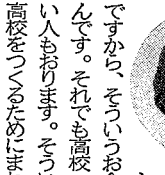 ですから、そういうお
んです。それでも高校
い人もおります。そう
高校をつくるためにま